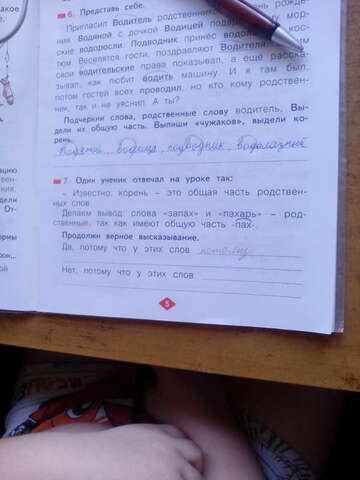 6. Представь себе.
Пригласил Водитель родственников на день рожде-
ния. Водяной с дочкой Водицей
ские водоросли. Подводник принёс
тюм. Веселятся гости, поздравляют Водителя
свои водительские права показывал, а ещё расска-
зывал, как любит водить машину. И я там был,
потом гостей всех проводил, но кто кому родствен-
ник, так и не уяснил. А ты?
Подчеркни слова, родственные слову водитель. Вы-
дели их общую часть. Выпиши «чужаков», выдели ко-
рень.
Водяной, водица, подводник, водолазный
7. Один ученик отвечал на уроке так:
– Известно: корень – это общая часть родствен-
ных слов.
Делаем вывод: слова «запах» и «пахарь» – род-
ственные, так как имеют общую часть -пах-.
Продолжи верное высказывание.
Да, потому что у этих слов
Нет, потому что у этих слов
5